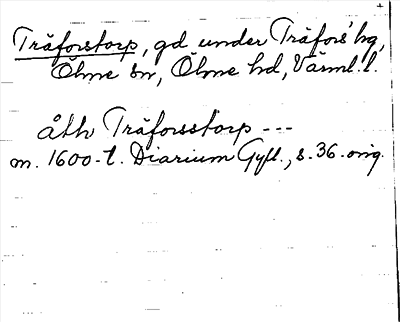 Träforstorp, gd under Träfors' hg,
Ölme sn, Ölme hd, Värml. l.
åth Träforsstorp ---
m. 1600-t. Diarium Gyll., s. 36. orig.